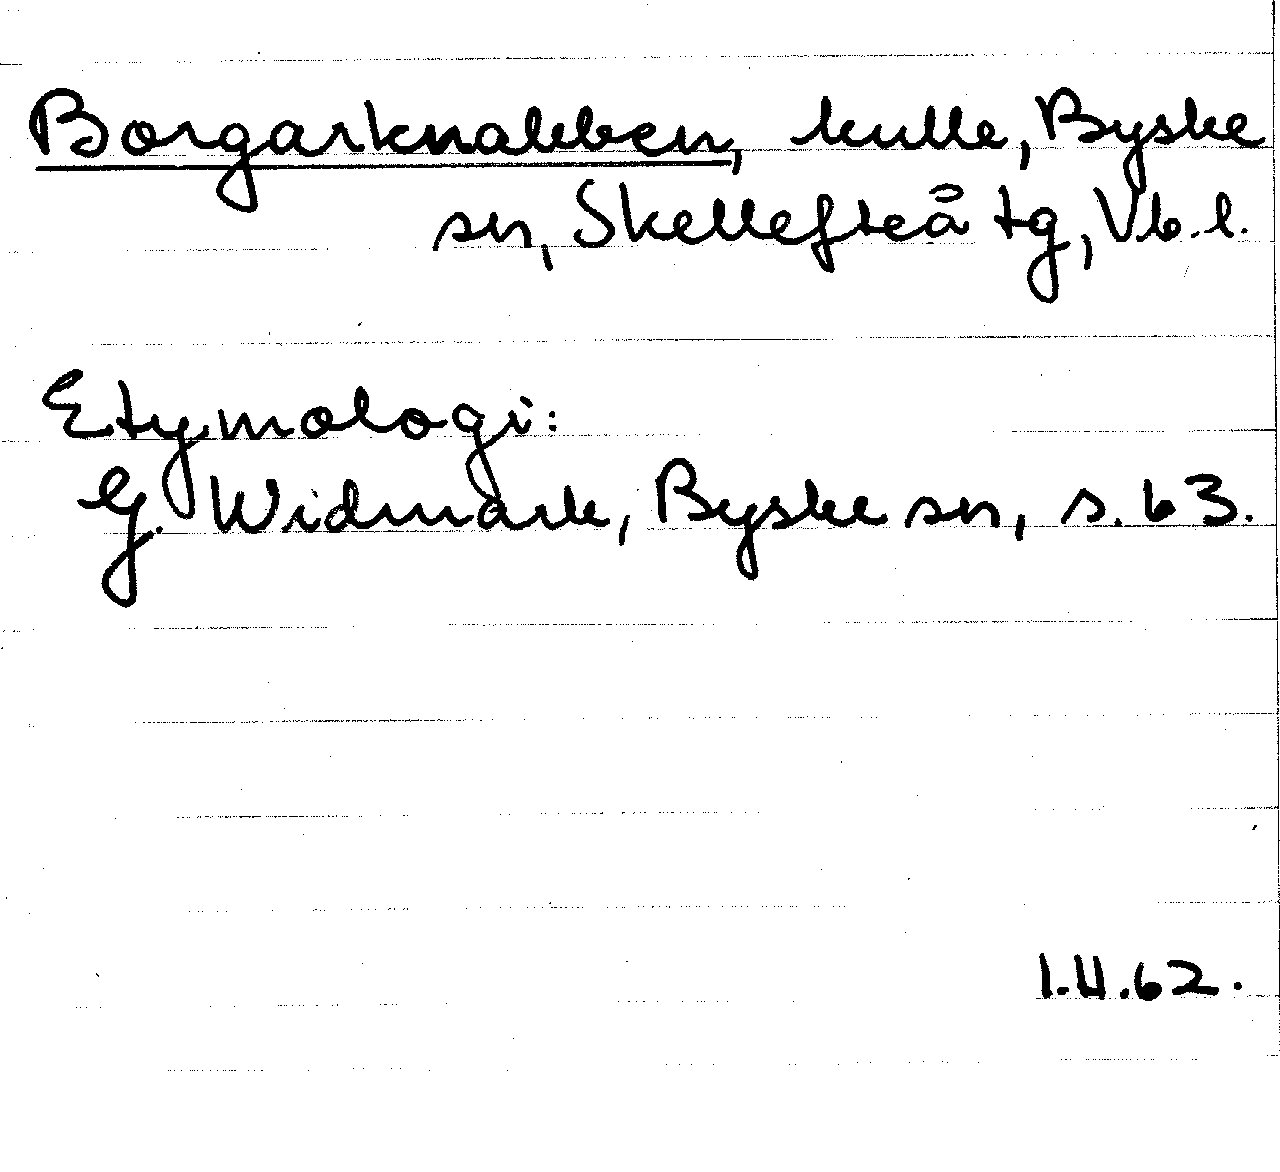 Borgarknabben, kulle, Byske
sn, Skellefteå tg, Vb.l.
Etymologi:
G. Widmark, Byske sn, s. 63.
1.11.62.